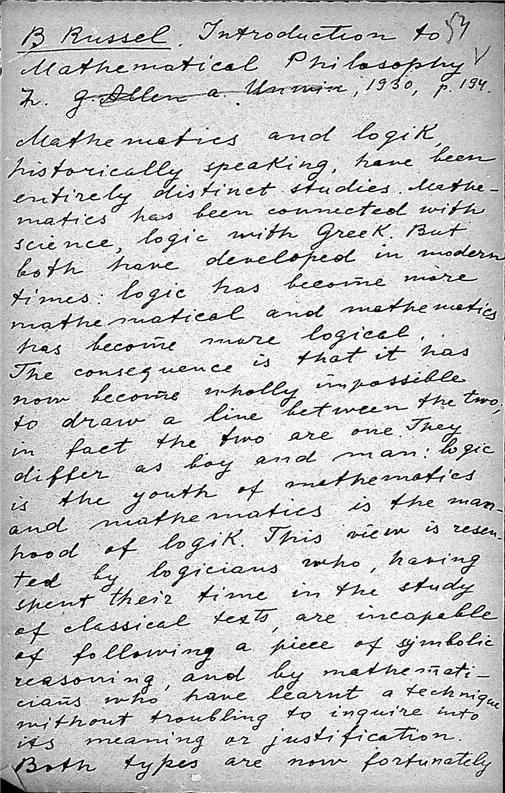 B Russel. Introduction to 54
Mathematical Philosophy V
L. G. Allen a. Unwin, 1930, p. 194.
Mathematics and logik,
historically speaking, have been
entirely distinct studies. Mathe-
matics has been connected with
science, logic with Greek. But
both have developed in modern
times: logic has become more
mathematical and mathematics
has become more logical.
The consequence is that it has
now become wholly impossible
to draw a line between the two;
in fact the two are one. They
differ as boy and man: logic
is the youth of mathematics
and mathematics is the man-
hood of logik. This view is resen-
ted by logicians who, having
spent their time in the study
of classical texts, are incapable
of following a piece of symbolic
reasoning, and by mathemati-
cians who have learnt a technique
without troubling to inquire into
its meaning or justification.
Both types are now fortunately